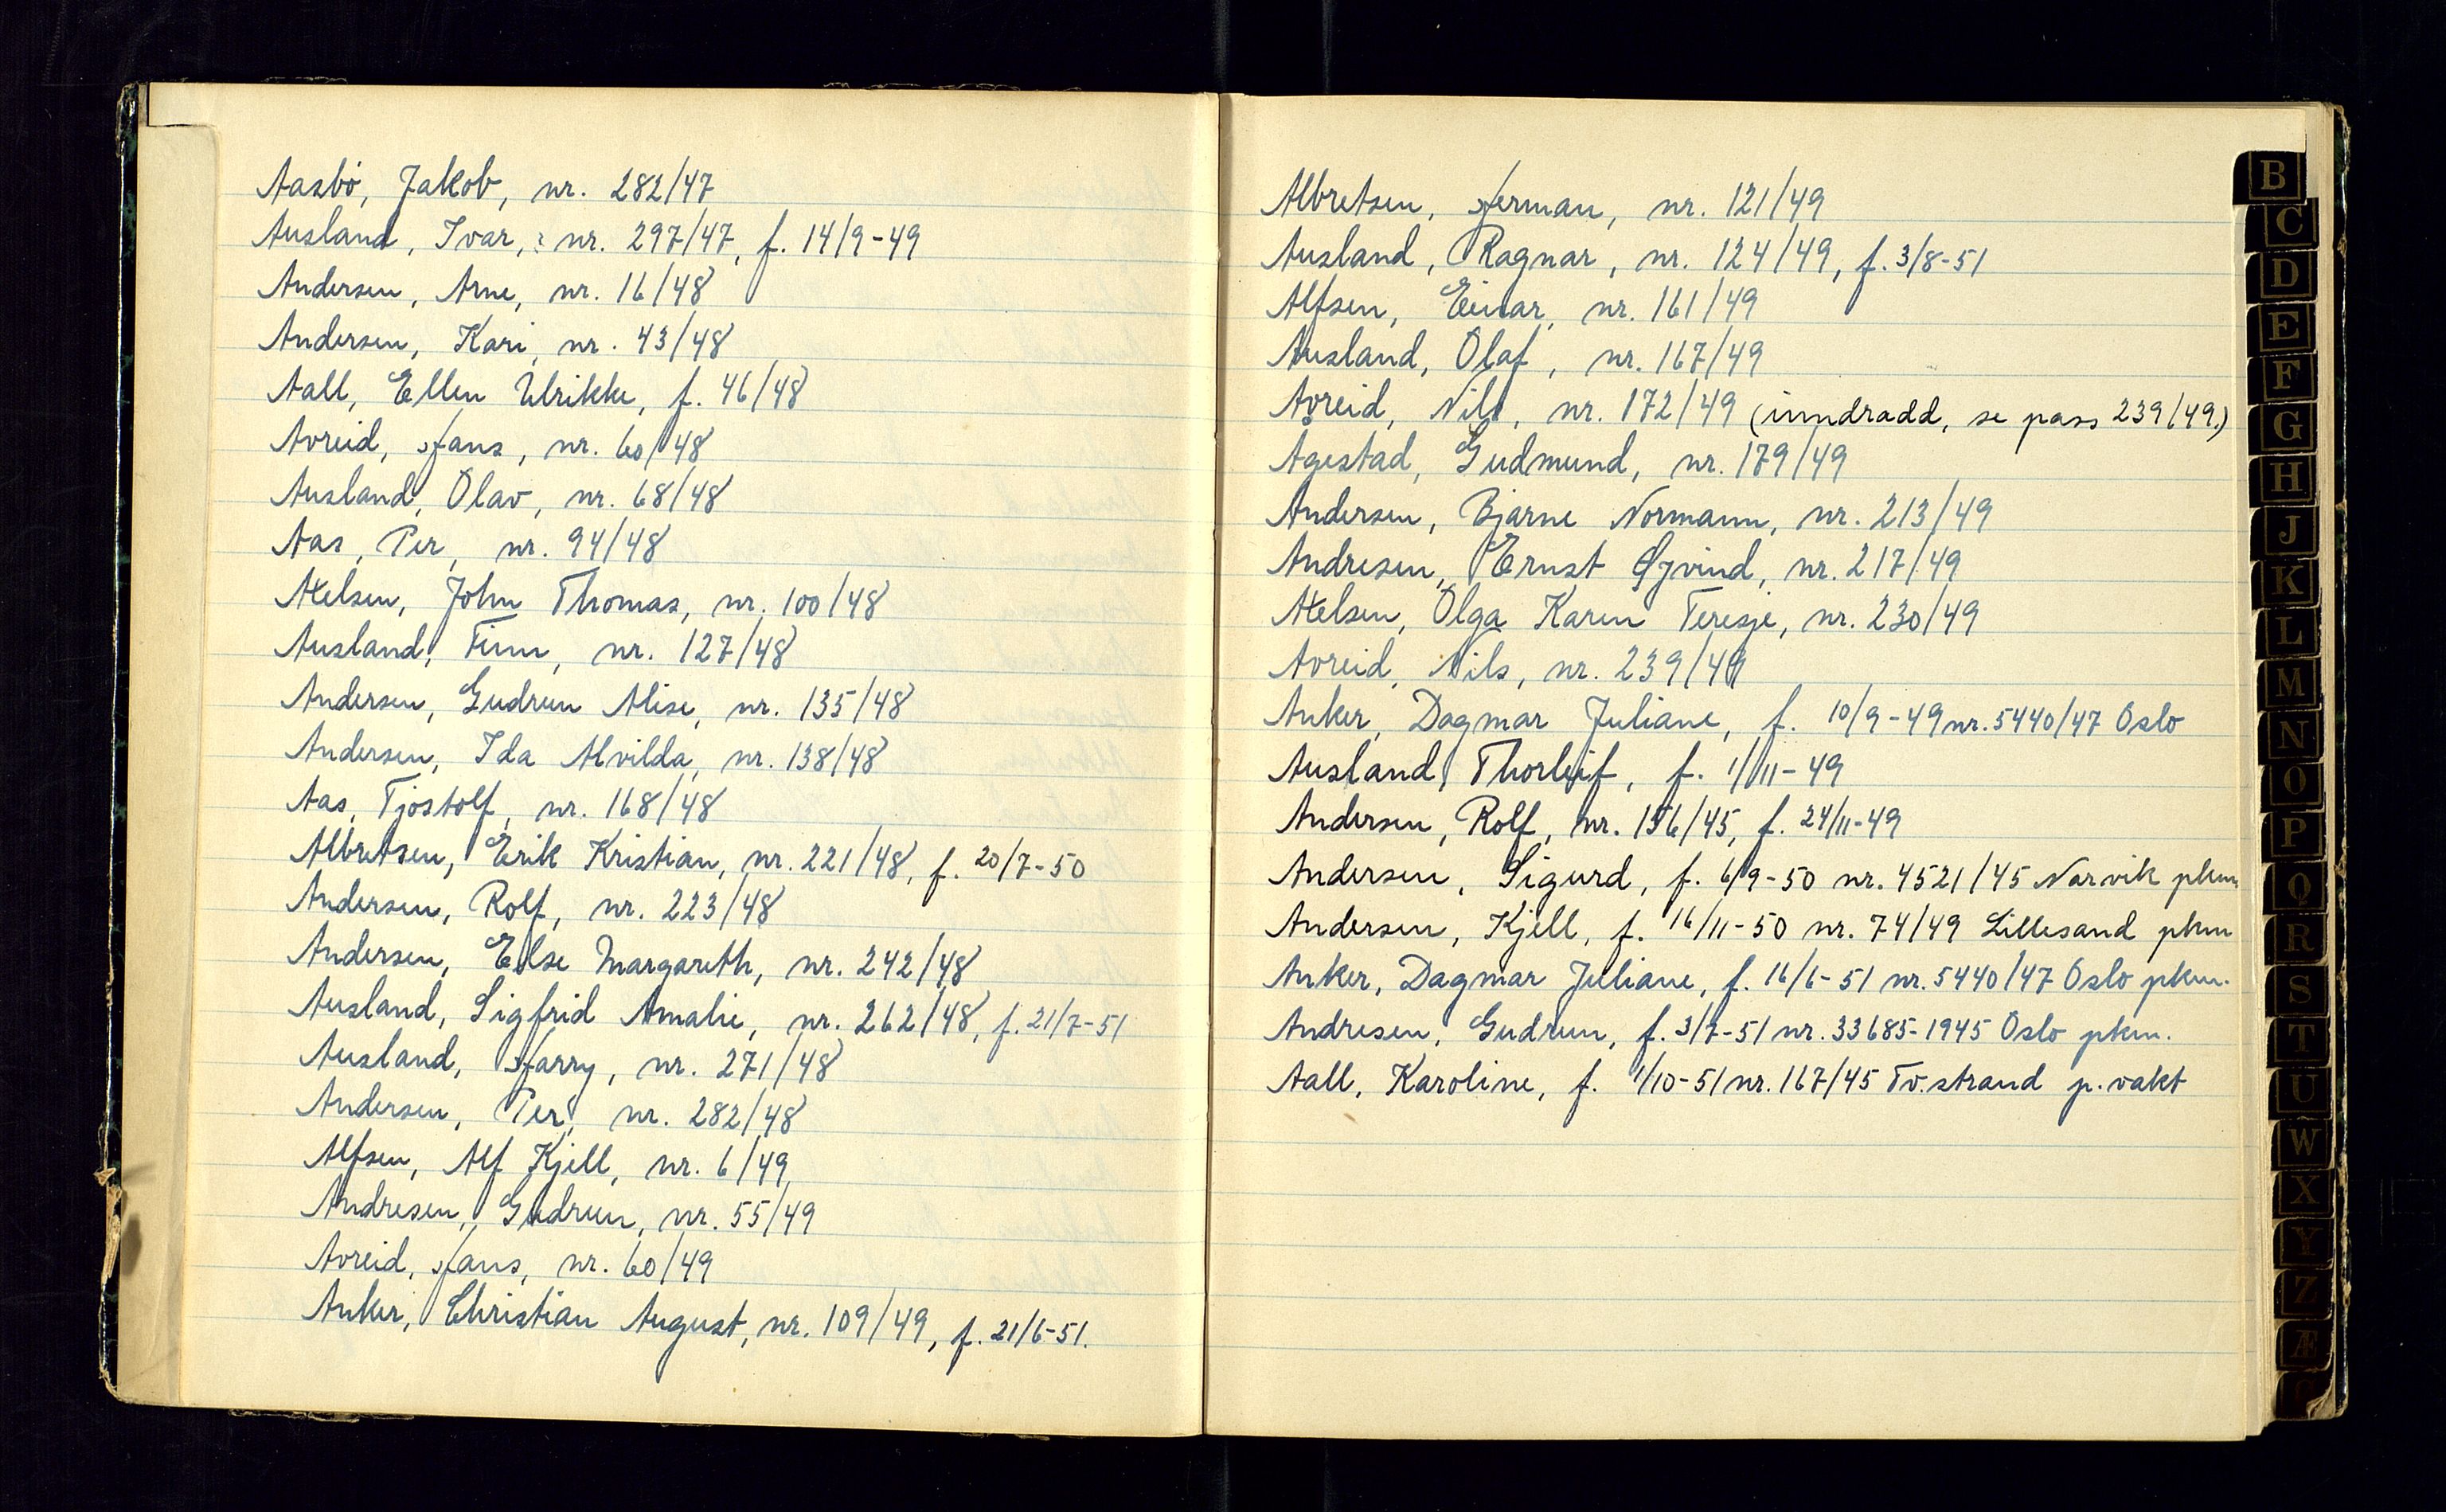 Aasbö, Jakob, nr. 282/47
Ausland, Ivar, nr. 297/47, f. 14/9-49
Andersen, Arne, nr. 16/48
Andersen, Kari, nr. 43/48
Aall, Ellen Ulrikke, f. 46/48
Avreid, Hans, nr. 60/48
Ausland, Olav, nr. 68/48
Aas, Per, nr. 94/48
Axelsen, John Thomas, nr. 100/48
Ausland, Finn, nr. 127/48
Andersen, Gudrun Alise, nr. 135/48
Andersen, Ida Alvilda, nr. 138/48
Aas, Tjostolf, nr. 168/48
Albretsen, Erik Kristian, nr. 221/48, f. 20/7-50
Andersen, Rolf, nr. 223/48
Andersen, Else Margareth, nr. 242/48
Ausland, Sigfrid Amalie, nr. 262/48, f. 21/7-51
Ausland, Harry, nr. 271/48
Andersen, Per, nr. 282/48
Alfsen, Alf Kjell, nr. 6/49
Andresen, Gudrun, nr. 55/49
Avreid, Hans, nr. 60/49
Anker, Christian August, nr. 109/49, f. 21/6-51.
Albretsen, Herman, nr. 121/49
Ausland, Ragnar, nr. 124/49, f. 3/8-51
Alfsen, Einar, nr. 161/49
Ausland, Olaf, nr. 167/49
Avreid, Nils, nr. 172/49 (inndradd, se pass 239/49.)
Agestad, Gudmund, nr. 179/49
Andersen, Bjarne Normann, nr. 213/49
Andresen, Ernst Øjvind, nr. 217/49
Axelsen, Olga Karen Teresje, nr. 230/49
Avreid, Nils, nr. 239/49
Anker, Dagmar Juliane, f. 10/9-49 nr. 5440/47 Oslo
Ausland, Thorleif, f. 1/11-49
Andersen, Rolf, nr. 156/45, f. 24/11-49
Andersen, Sigurd, f. 6/9-50 nr. 4521/45 Narvik pkm.
Andersen, Kjell, f. 16/11-50 nr. 74/49 Lillesand pkm
Anker, Dagmar Juliane, f. 16/6-51 nr. 5440/47 Oslo pkm.
Andresen, Gudrun, f. 3/7-51 nr. 33685-1945 Oslo pkm.
Aall, Karoline, f. 1/10-51 nr. 167/45 Tv.strand p.vakt
B
C
D
E
F
G
H
J
K
L
M
N
O
P
Q
R
S
T
U
W
X
Y
Z
Æ